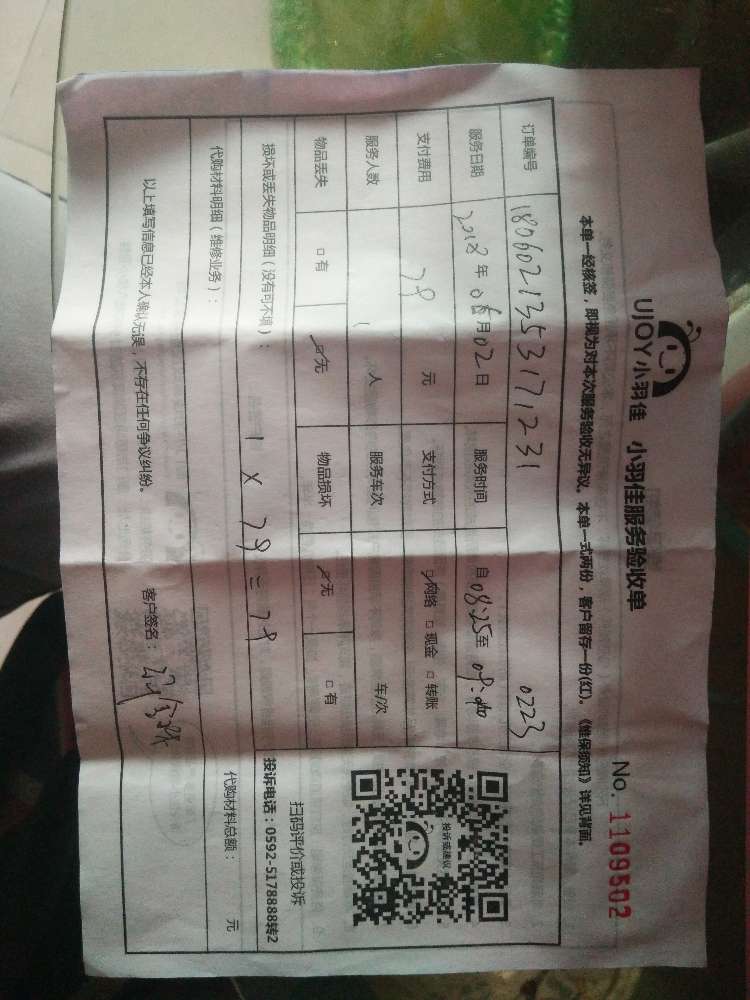 UJOY小羽佳 小羽佳服务验收单
No. 1109502
本单一经核签，即视为对本次服务验收无异议。本单一式两份，客户留存一份(红)。《维保须知》详见背面。
订单编号 1806021353171231 0223
服务日期 2018年06月02日 服务时间 自08:25至09:40
支付费用 78 元 支付方式 ☑网络 □现金 □转账
服务人数 1 人 服务车次 车/次
物品丢失 □有 ☑无 物品损坏 ☑无 □有
损坏或丢失物品明细（没有可不填）：
1 X 78 = 78
代购材料明细（维修业务）：
代购材料总额： 元
以上填写信息已经本人确认无误，不存在任何争议纠纷。 客户签名：
投诉或建议
扫码评价或投诉
投诉电话：0592-5178888转2